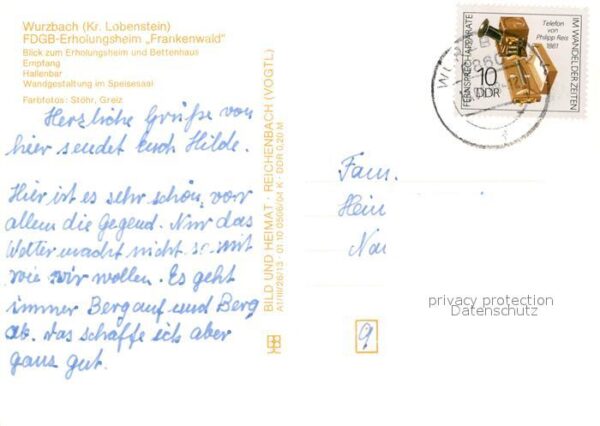 Wurzbach (Kr. Lobenstein)
FDGB-Erholungsheim „Frankenwald"
Blick zum Erholungsheim und Bettenhaus
Empfang
Hallenbar
Wandgestaltung im Speisesaal
Farbfotos: Stöhr, Greiz
Herzliche Grüße von
hier sendet Euch Hilde.
Hier ist es sehr schön, vor
allem die Gegend. Nur das
Wetter macht nicht so mit
wie wir wollen. Es geht
immer Berg auf und Berg
ab. das schaffe ich aber
ganz gut.
BILD UND HEIMAT · REICHENBACH (VOGTL)
A1/III/26/13 01 10 0506/04 K · DDR 0,20 M
FERNSPRECHAPPARATE
IM WANDEL DER ZEITEN
Telefon
von
Philipp Reis
1861
10
DDR
Fam.
Hein
Na
privacy protection
Datenschutz
9